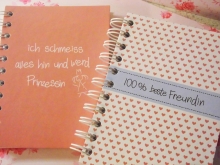 Ich schmeiss
alles hin und werd
Prinzessin
100% beste Freundin